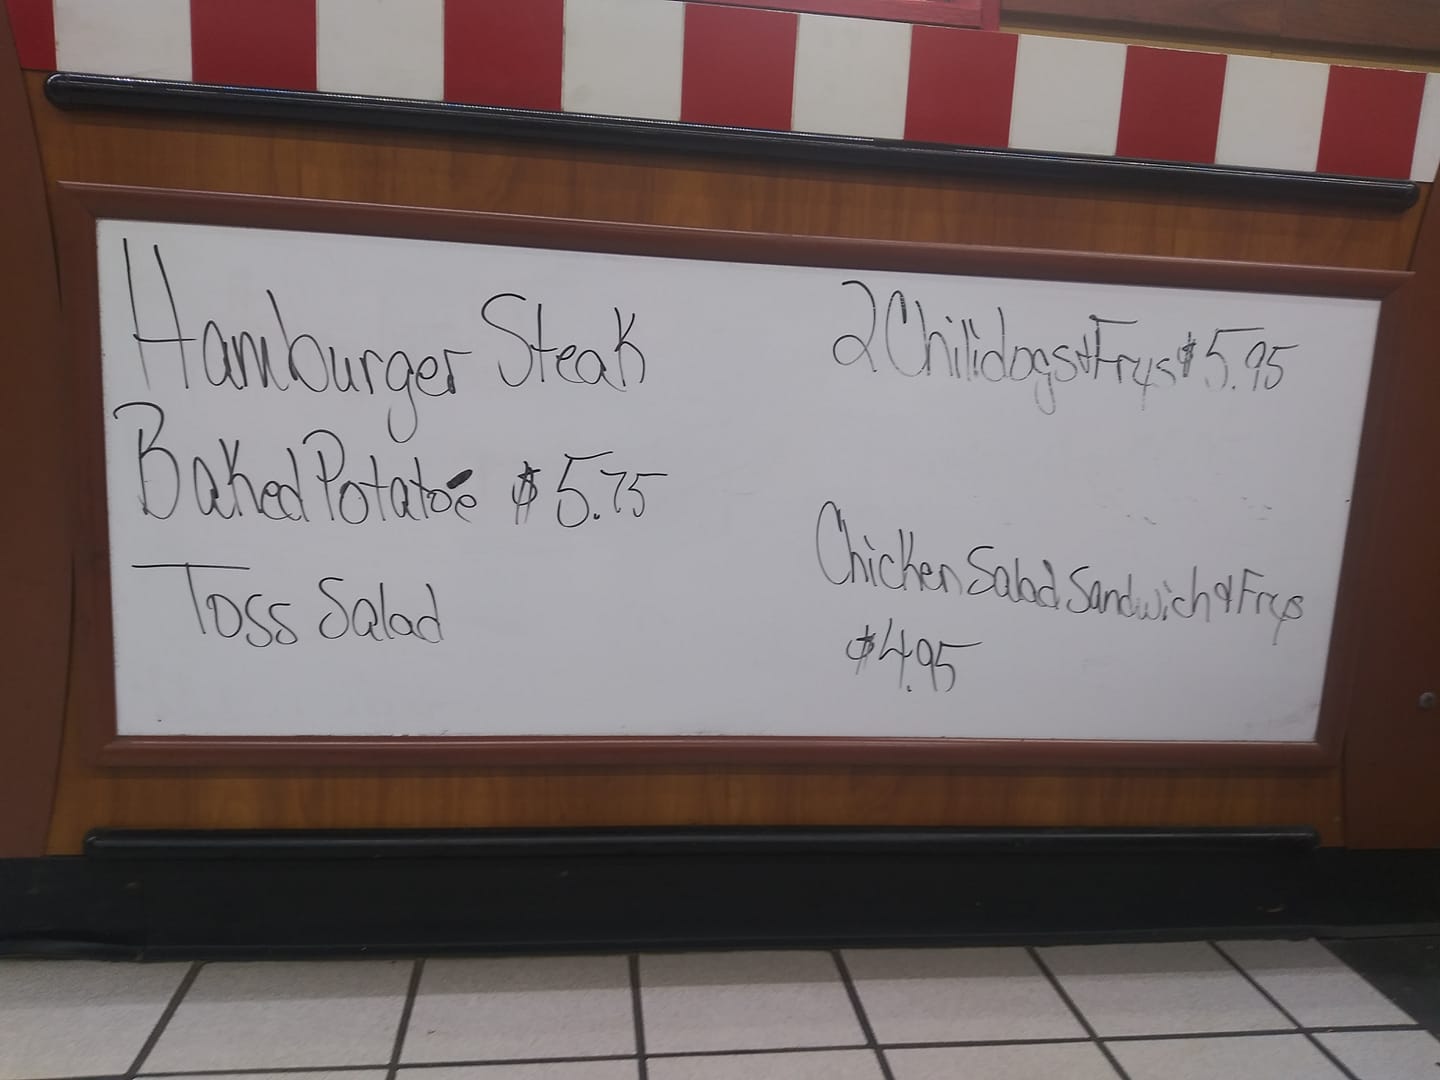 Hamburger Steak
Baked Potatoe $5.75
Toss Salad
2 Chilidogs & Frys $5.95
Chicken Salad Sandwich & Frys
$4.95